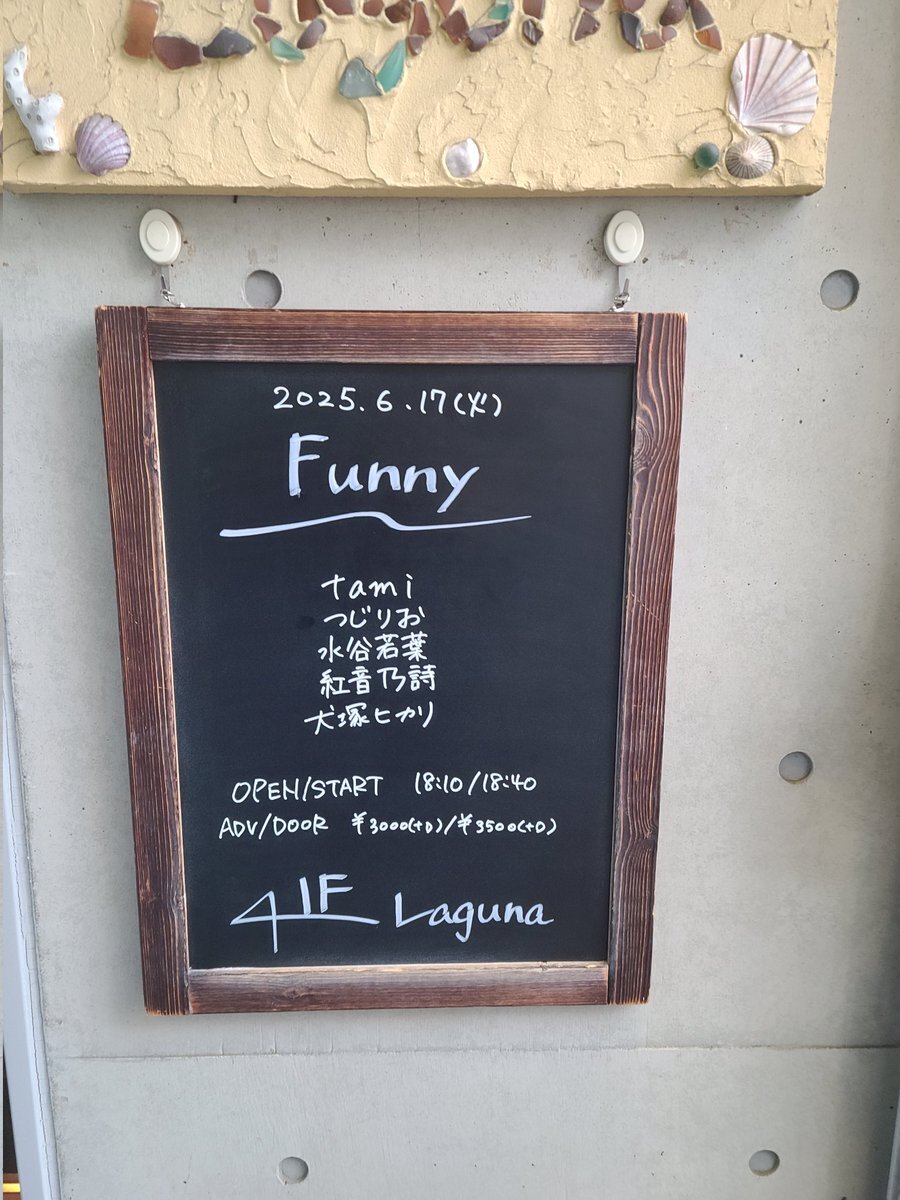 2025.6.17(火)
Funny
tami
つじりお
水谷若葉
紅音乃詩
犬塚ヒカリ
OPEN/START 18:10/18:40
ADV/DOOR ¥3000(+D)/¥3500(+D)
1F Laguna